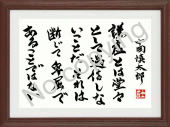 慎太郎
謙虚とは堂々
として過信しな
いことだそれは
断じて卑屈で
あることではない
No copying